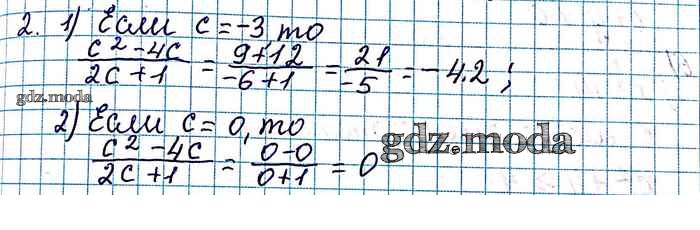 2. 1) Если c = -3, то
c² - 4c / 2c + 1 = 9 + 12 / -6 + 1 = 21 / -5 = -4.2;
gdz.moda
2) Если c = 0, то
gdz.moda
c² - 4c / 2c + 1 = 0 - 0 / 0 + 1 = 0